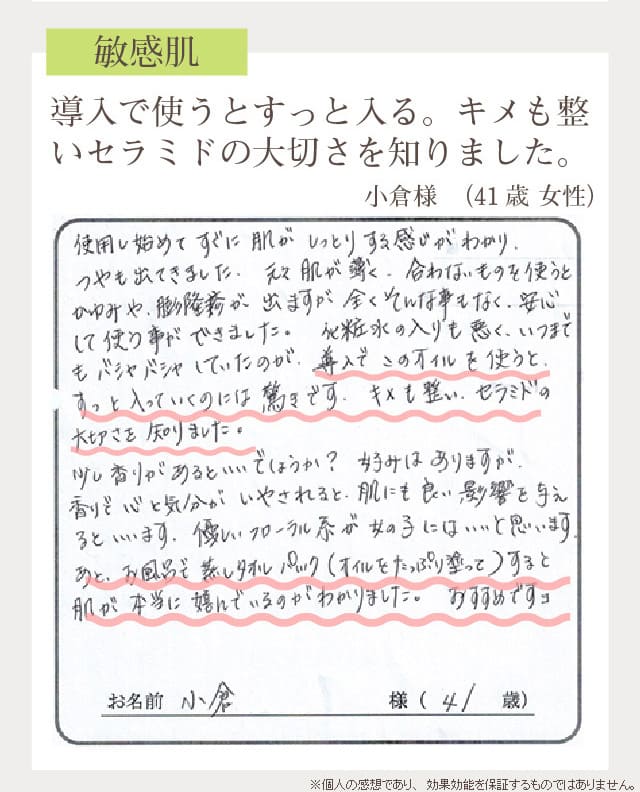 敏感肌
導入で使うとすっと入る。キメも整
いセラミドの大切さを知りました。
小倉様 (41歳 女性)
使用し始めてすぐに肌がしっとりする感じがわかり、
つやも出てきました。元々肌が薄く、合わないものを使うと
かゆみや、膨隆疹が出ますが全くそんな事もなく、安心
して使う事ができました。化粧水の入りも悪く、いつまで
もバシャバシャしていたのが、導入でこのオイルを使うと、
すっと入っていくのには驚きです。キメも整い、セラミドの
大切さを知りました。
少し香りがあるといいでしょうか？好みはありますが、
香りで心と気分がいやされると、肌にも良い影響を与え
るといいます。優しいフローラル系が女の子にはいいと思います。
あと、お風呂で蒸しタオルパック(オイルをたっぷり塗って)すると
肌が本当に嬉んでいるのがわかりました。おすすめです
お名前 小倉 様 ( 41 歳)
※個人の感想であり、効果効能を保証するものではありません。